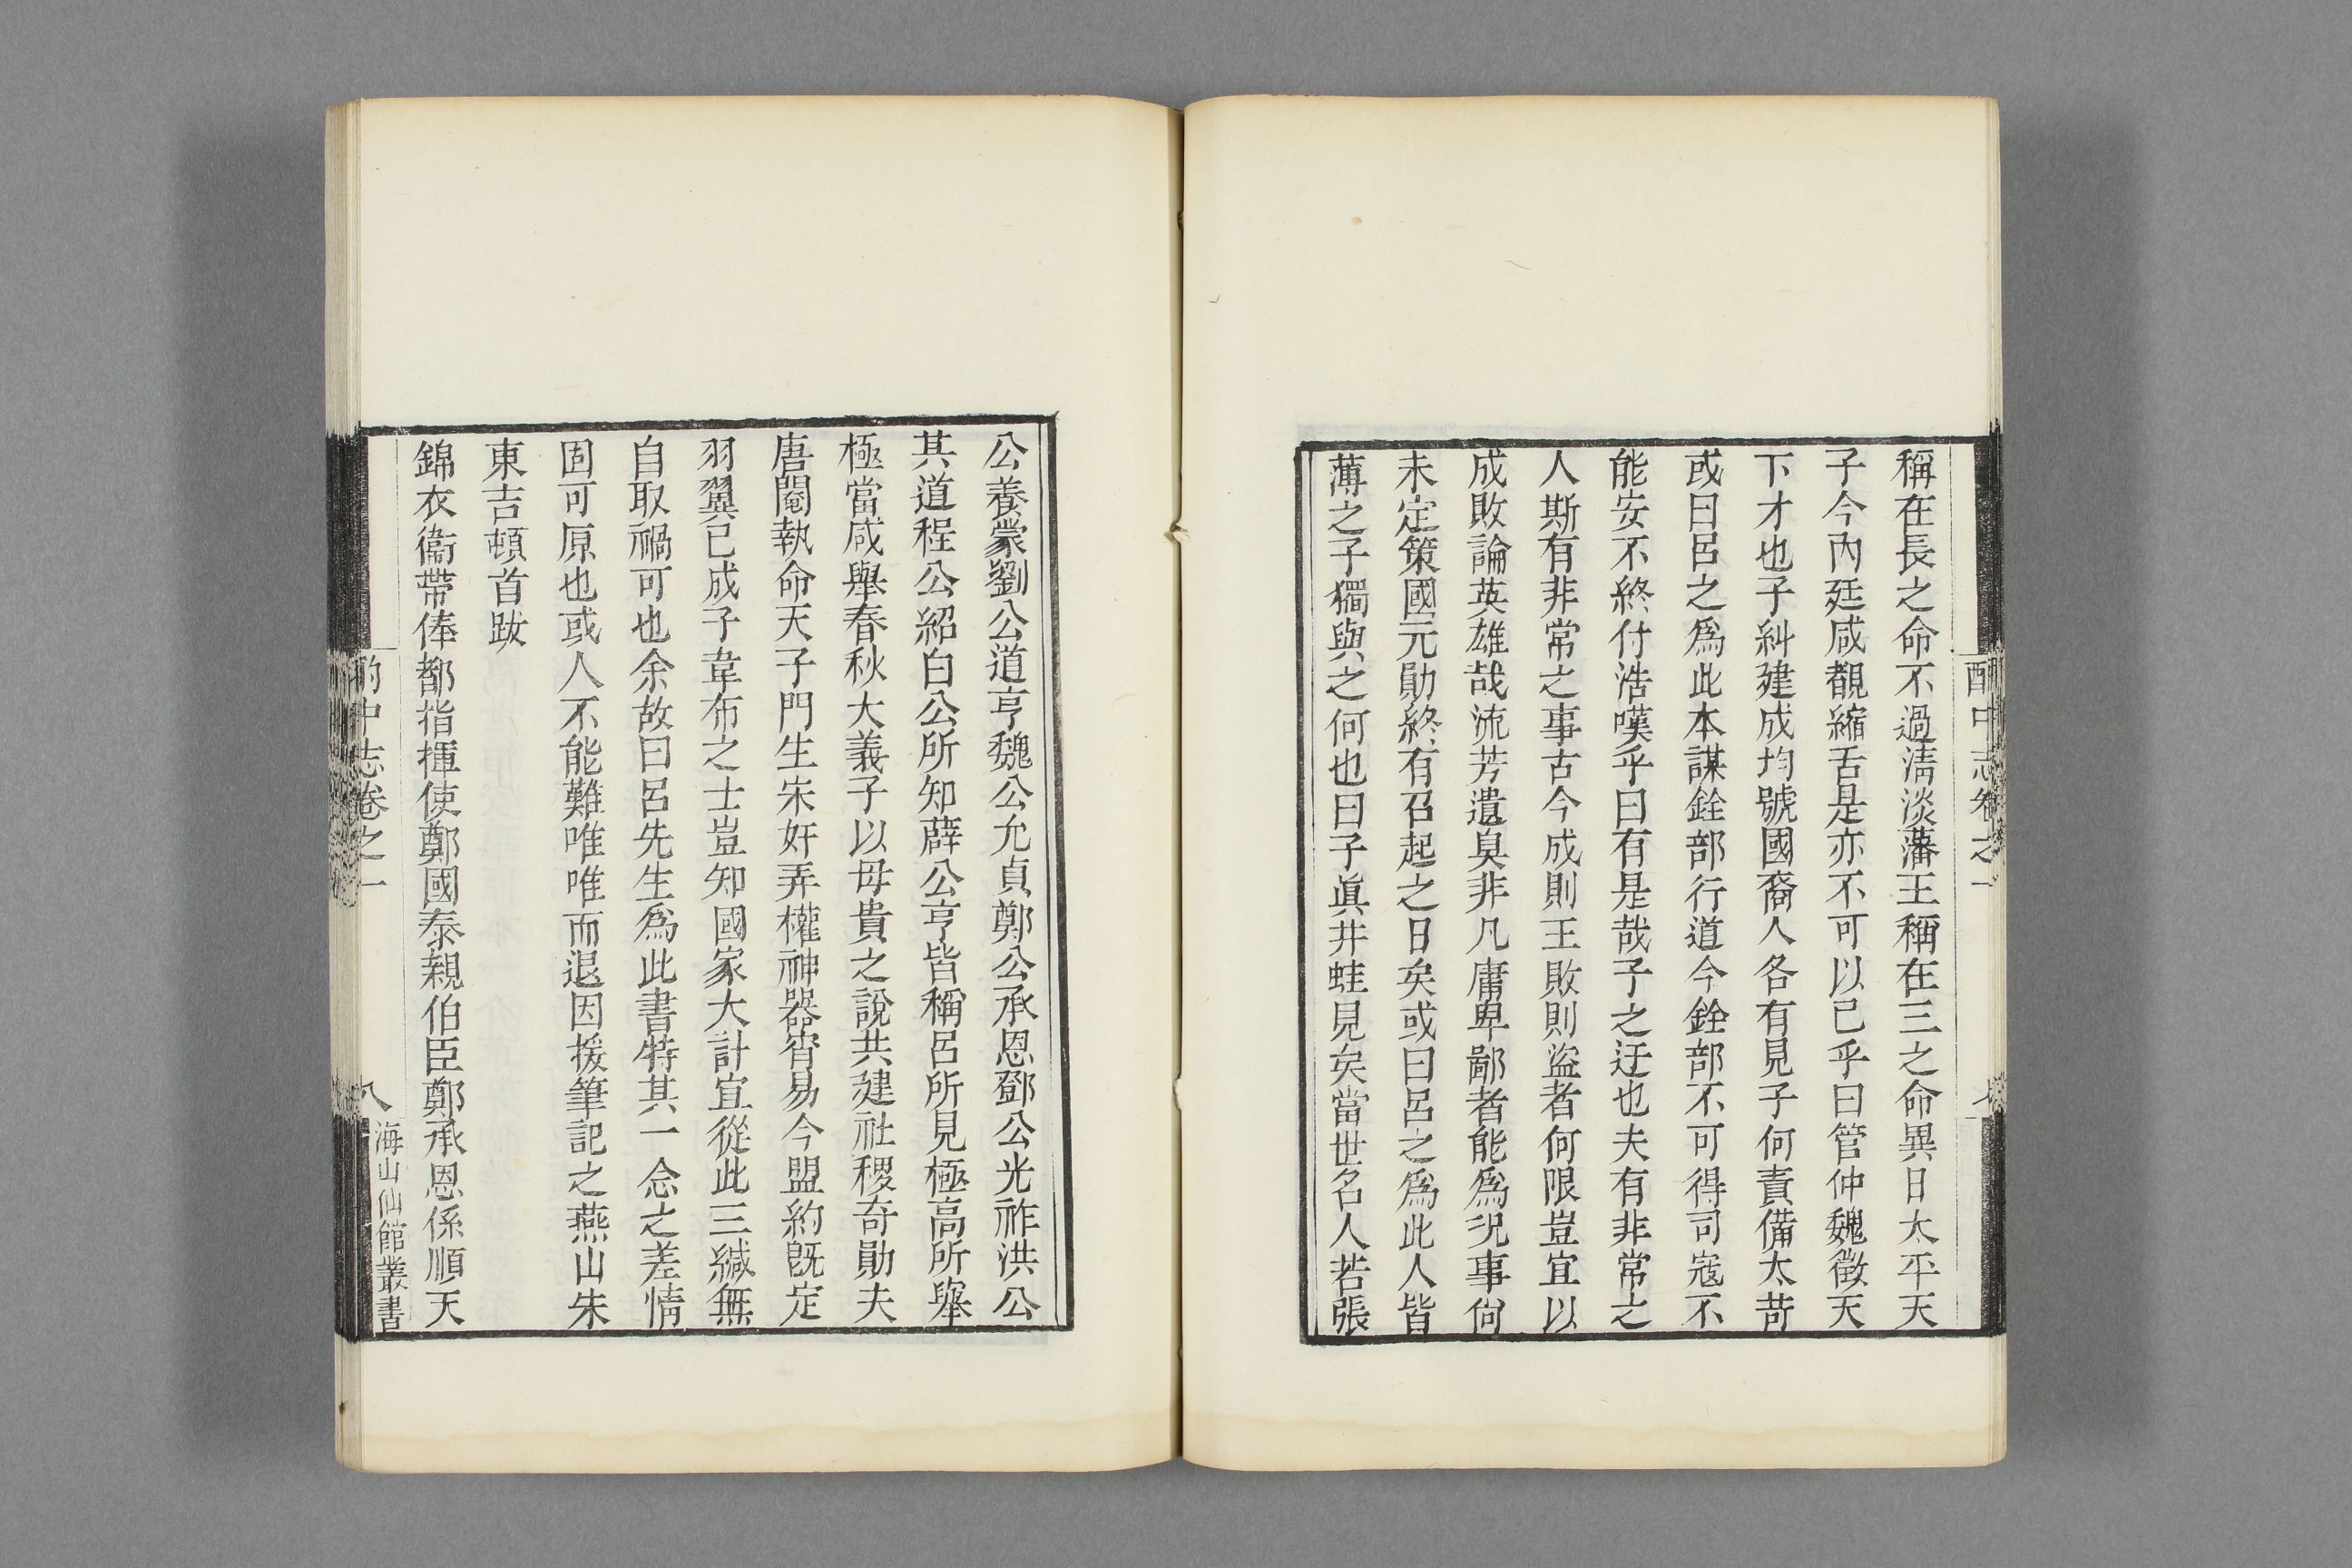 酌中志卷之一
七
稱在長之命不過淸淡藩王稱在三之命異日太平天
子今內廷咸覩縮舌是亦不可以已乎曰管仲魏徵天
下才也子糾建成均號國裔人各有見子何責備太苛
或曰呂之爲此本謀銓部行道今銓部不可得司寇不
能安不終付浩嘆乎曰有是哉子之迂也夫有非常之
人斯有非常之事古今成則王敗則盜者何限豈宜以
成敗論英雄哉流芳遺臭非凡庸卑鄙者能爲況事尙
未定策國元勛終有召起之日矣或曰呂之爲此人皆
薄之子獨與之何也曰子眞井蛙見矣當世名人若張
公養蒙劉公道亨魏公允貞鄭公承恩鄧公光祚洪公
其道程公紹白公所知薛公亨皆稱呂所見極高所舉
極當咸舉春秋大義子以母貴之說共建社稷奇勛夫
唐閹執命天子門生宋奸弄權神器宵易今盟約旣定
羽翼已成子韋布之士豈知國家大計宜從此三緘無
自取禍可也余故曰呂先生爲此書特其一念之差情
固可原也或人不能難唯唯而退因援筆記之燕山朱
東吉頓首跋
錦衣衞帶俸都指揮使鄭國泰親伯臣鄭承恩係順天
酌中志卷之一
八
海山仙館叢書